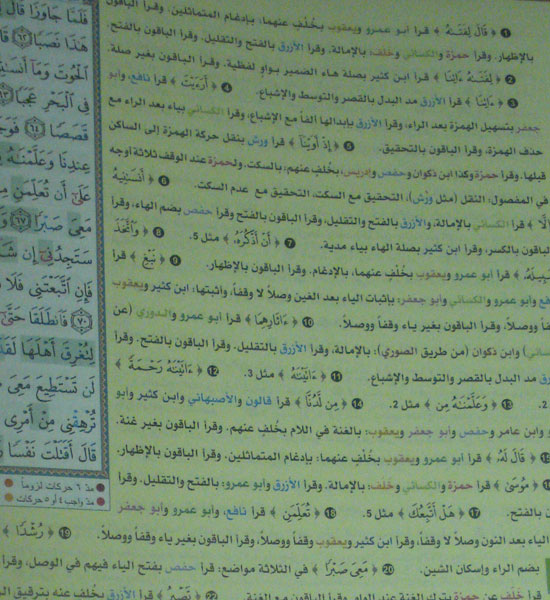 ١ ﴿ قَالَ لِفَتَـٰهُ ﴾ قرأ أبو عمرو ويعقوب بخُلفٍ عنهما، بإدغام المتماثلين. وقرأ الباقون
بالإظهار. وقرأ حمزة والكسائي وخلف: بالإمالة. وقرأ الأزرق بالفتح والتقليل. وقرأ الباقون بالفتح
٢ ﴿ لِفَتَـٰهُ ءَاتِنَا ﴾ قرأ ابن كثير بصلة هاء الضمير بواو لفظية. وقرأ الباقون بغير صلة.
٣ ﴿ ءَاتِنَا ﴾ قرأ الأزرق مد البدل بالقصر والتوسط والإشباع. ٤ ﴿ أَرَءَيْتَ ﴾ قرأ نافع، وأبو
جعفر بتسهيل الهمزة بعد الراء، وقرأ الأزرق بإبدالها ألفاً مع الإشباع، وقرأ الكسائي بياء بعد الراء مع
حذف الهمزة، وقرأ الباقون بالتحقيق. ٥ ﴿ إِذْ أَوَيْنَآ ﴾ قرأ ورش بنقل حركة الهمزة إلى الساكن
قبلها، وقرأ حمزة وكذا ابن ذكوان وحفص وإدريس، بخُلفٍ عنهم: بالسكت. ولحمزة عند الوقف ثلاثة أوجه
في المفصول: النقل (مثل ورش)، التحقيق مع السكت، التحقيق مع عدم السكت. ٦ ﴿ أَنسَىٰنِيهُ
إِلَّا ﴾ قرأ الكسائي بالإمالة، والأزرق بالفتح والتقليل، وقرأ الباقون بالفتح وقرأ حفص بضم الهاء، وقرأ
الباقون بالكسر، وقرأ ابن كثير بصلة الهاء بياء مدية. ٧ ﴿ أَنْ أَذْكُرَهُۥ ﴾ مثل 5. ٨ ﴿ وَٱتَّخَذَ
سَبِيلَهُۥ ﴾ قرأ أبو عمرو ويعقوب بخُلفٍ عنهما، بالإدغام. وقرأ الباقون بالإظهار. ٩ ﴿ نَبْغِ ﴾ قرأ
نافع وأبو عمرو والكسائي وأبو جعفر، بإثبات الياء بعد الغين وصلاً لا وقفاً، وأثبتها: ابن كثير ويعقوب
وقفاً ووصلاً. وقرأ الباقون بغير ياء وقفاً ووصلاً. ١٠ ﴿ ءَاثَارِهِمَا ﴾ قرأ أبو عمرو والدوري (عن
الكسائي) وابن ذكوان (من طريق الصوري): بالإمالة. وقرأ الأزرق بالتقليل. وقرأ الباقون بالفتح. وقرأ
الأزرق مد البدل بالقصر والتوسط والإشباع. ١١ ﴿ ءَاتَيْنَـٰهُ ﴾ مثل 3. ١٢ ﴿ ءَاتَيْنَـٰهُ رَحْمَةً ﴾
مثل 2. ١٣ ﴿ وَعَلَّمْنَـٰهُ مِن ﴾ مثل 2. ١٤ ﴿ مِن لَّدُنَّا ﴾ قرأ قالون والأصبهاني وابن كثير وأبو
عمرو وابن عامر وحفص وأبو جعفر ويعقوب: بالغنة في اللام بخُلفٍ عنهم، وقرأ الباقون بغير غنة.
١٥ ﴿ قَالَ لَهُۥ ﴾ قرأ أبو عمرو ويعقوب بخُلفٍ عنهما: بإدغام المتماثلين. وقرأ الباقون بالإظهار.
١٦ ﴿ مُوسَىٰ ﴾ قرأ حمزة والكسائي وخلف: بالإمالة. وقرأ الأزرق وأبو عمرو: بالفتح والتقليل. وقرأ
الباقون بالفتح. ١٧ ﴿ هَلْ أَتَّبِعُكَ ﴾ مثل 5. ١٨ ﴿ تُعَلِّمَنِ ﴾ قرأ نافع، وأبو عمرو وأبو جعفر
الياء بعد النون وصلاً لا وقفاً، وقرأ ابن كثير ويعقوب وقفاً ووصلاً، وقرأ الباقون بغير ياء وقفاً ووصلاً. ١٩ ﴿ رُشْدًا ﴾
بضم الراء وإسكان الشين. ٢٠ ﴿ مَعِىَ صَبْرًا ﴾ في الثلاثة مواضع: قرأ حفص بفتح الياء فيهم في الوصل، وقرأ
قرأ خلف عن حمزة بترك الغنة عند الواو، وقرأ الباقون مع الغنة. ٢٢ ﴿ تَصْبِرُ ﴾ قرأ الأزرق بخُلفٍ عنه بترقيق
فَلَمَّا جَاوَزَا قَالَ
هَـٰذَا نَصَبًا
ٱلْحُوتَ وَمَآ أَنسَىٰنِيهُ
فِى ٱلْبَحْرِ عَجَبًا
قَصَصًا ٦٤ فَوَجَدَا
عِندِنَا وَعَلَّمْنَـٰهُ
عَلَىٰٓ أَن تُعَلِّمَنِ
مَعِىَ صَبْرًا ٦٧
سَتَجِدُنِىٓ إِن شَآءَ
فَإِنِ ٱتَّبَعْتَنِى فَلَا
٧٠ فَٱنطَلَقَا حَتَّىٰٓ
لِتُغْرِقَ أَهْلَهَا لَقَدْ
لَن تَسْتَطِيعَ مَعِىَ
تُرْهِقْنِى مِنْ أَمْرِى
قَالَ أَقَتَلْتَ نَفْسًا
مدّ ٦ حركات لزوماً
مدّ واجب ٤ أو ٥ حركات